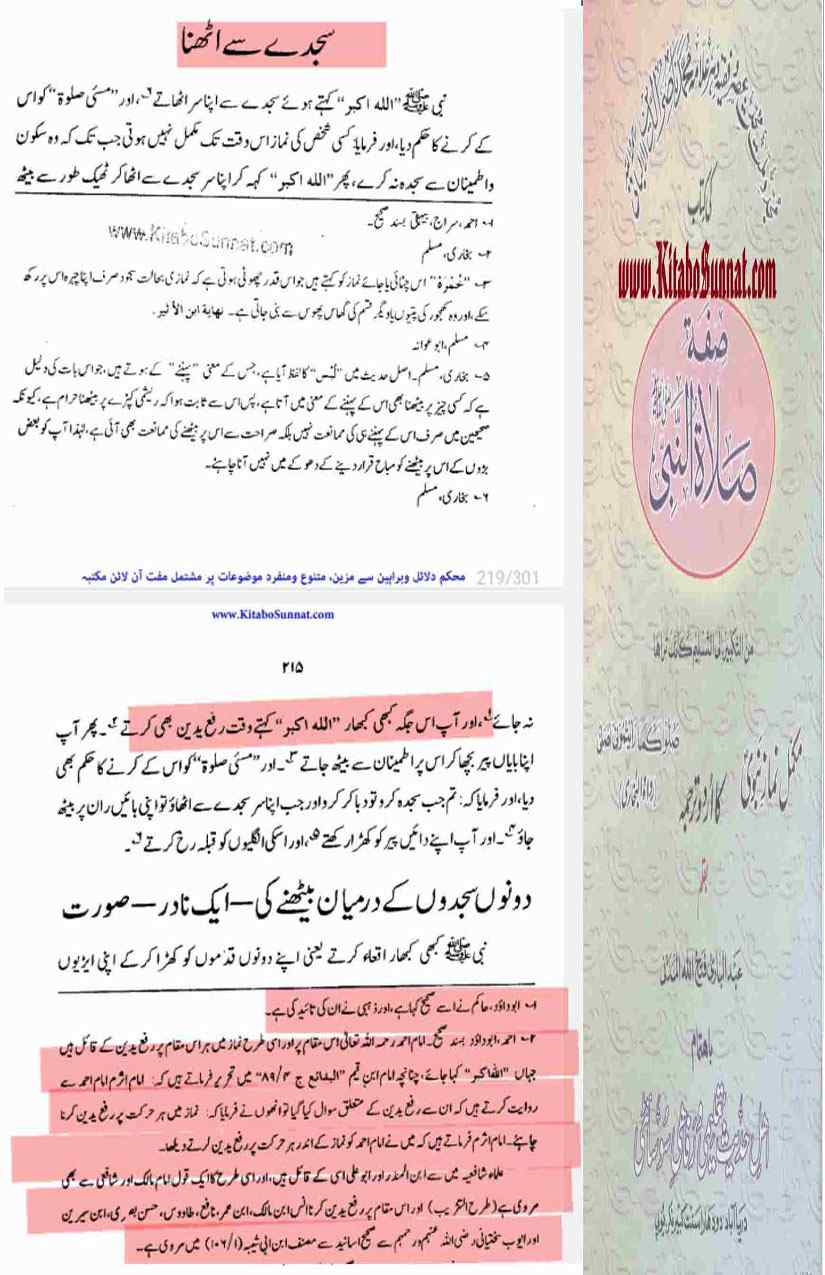 سجدے سے اٹھنا
نبی ﷺ "الله اکبر" کہتے ہوئے سجدے سے اپنا سر اٹھاتے ۶؎، اور "مسئی صلوۃ" کو اس
کے کرنے کا حکم دیا، اور فرمایا: کسی شخص کی نماز اس وقت تک مکمل نہیں ہوتی جب تک کہ وہ سکون
و اطمینان سے سجدہ نہ کرے، پھر "الله اکبر" کہہ کر اپنا سر سجدے سے اٹھا کر ٹھیک طور سے بیٹھ
۱؎ احمد، سراج، بیہقی بسند صحیح۔
www.KitaboSunnat.com
۲؎ بخاری، مسلم
۳؎ "خُمْرَة" اس چٹائی یا جائے نماز کو کہتے ہیں جو اس قدر چھوٹی ہوتی ہے کہ نمازی بحالت سجود صرف اپنا چہرہ اس پر رکھ
سکے، اور وہ کھجور کی پتیوں یا دیگر قسم کی گھاس پھوس سے بنی جاتی ہے۔ نهاية ابن الأثير۔
۴؎ مسلم، ابوعوانہ
۵؎ بخاری، مسلم۔ اصل حدیث میں "لُبِس" کا لفظ آیا ہے، جس کے معنی "پہننے" کے ہوتے ہیں، جو اس بات کی دلیل
ہے کہ کسی چیز پر بیٹھنا بھی اس کے پہننے کے معنی میں آتا ہے، پس اس سے ثابت ہوا کہ ریشمی کپڑے پر بیٹھنا حرام ہے، کیونکہ
صحیحین میں صرف اس کے پہننے ہی کی ممانعت نہیں بلکہ صراحت سے اس پر بیٹھنے کی ممانعت بھی آئی ہے، لہٰذا آپ کو بعض
بڑوں کے اس پر بیٹھنے کو مباح قرار دینے کے دھوکے میں نہیں آنا چاہئے۔
۶؎ بخاری، مسلم
محکم دلائل وبراہین سے مزین، متنوع ومنفرد موضوعات پر مشتمل مفت آن لائن مکتبہ
219/301
www.KitaboSunnat.com
۲۱۵
نہ جائے ۱؎، اور آپ اس جگہ کبھی کبھار "الله اکبر" کہتے وقت رفع یدین بھی کرتے ۲؎۔ پھر آپ
اپنا بایاں پیر بچھا کر اس پر اطمینان سے بیٹھ جاتے ۳؎۔ اور "مسئی صلوۃ" کو اس کے کرنے کا حکم بھی
دیا، اور فرمایا کہ: تم جب سجدہ کرو تو دبا کر کرو اور جب اپنا سر سجدے سے اٹھاؤ تو اپنی بائیں ران پر بیٹھ
جاؤ ۴؎۔ اور آپ اپنے دائیں پیر کو کھڑا رکھتے ۵؎، اور اسکی انگلیوں کو قبلہ رخ کرتے ۶؎۔
دونوں سجدوں کے درمیان بیٹھنے کی – ایک نادر – صورت
نبی ﷺ کبھی کبھار اقعاء کرتے یعنی اپنے دونوں قدموں کو کھڑا کر کے اپنی ایڑیوں
۱؎ ابوداؤد، حاکم نے اسے صحیح کہا ہے، اور ذہبی نے ان کی تائید کی ہے۔
۲؎ احمد، ابوداؤد بسند صحیح۔ امام احمد رحمہ اللہ تعالیٰ اس مقام پر اور اسی طرح نماز میں ہر اس مقام پر رفع یدین کے قائل ہیں
جہاں "الله اکبر" کہا جائے، چنانچہ امام ابن قیم "البدائع ج ۸۹/۴" میں تحریر فرماتے ہیں کہ: امام اثرم امام احمد سے
روایت کرتے ہیں کہ ان سے رفع یدین کے متعلق سوال کیا گیا تو انھوں نے فرمایا کہ: نماز میں ہر حرکت پر رفع یدین کرنا
چاہئے۔ امام اثرم فرماتے ہیں کہ میں نے امام احمد کو نماز کے اندر ہر حرکت پر رفع یدین کرتے دیکھا۔
علماء شافعیہ میں سے ابن المنذر اور ابو علی اسی کے قائل ہیں، اور اسی طرح کا ایک قول امام مالک اور شافعی سے بھی
مروی ہے (طرح التثریب) اور اس مقام پر رفع یدین کرنا انس ابن مالک، ابن عمر، نافع، طاووس، حسن بصری، ابن سیرین
اور ایوب سختیانی رضی اللہ عنہم ورحمہم سے صحیح اسانید سے مصنف ابن ابی شیبہ (۱۰۶/۱) میں مروی ہے۔
کی کتاب
www.KitaboSunnat.com
صفة
صلاة النبي
من التكبير الى التسليم كأنك تراها
مکمل نماز نبوی
صلوا كما رأيتموني أصلي
(رواه البخاري)
کا اردو ترجمہ
بقلم
عبد الباری فتح اللہ المدنی
باہتمام